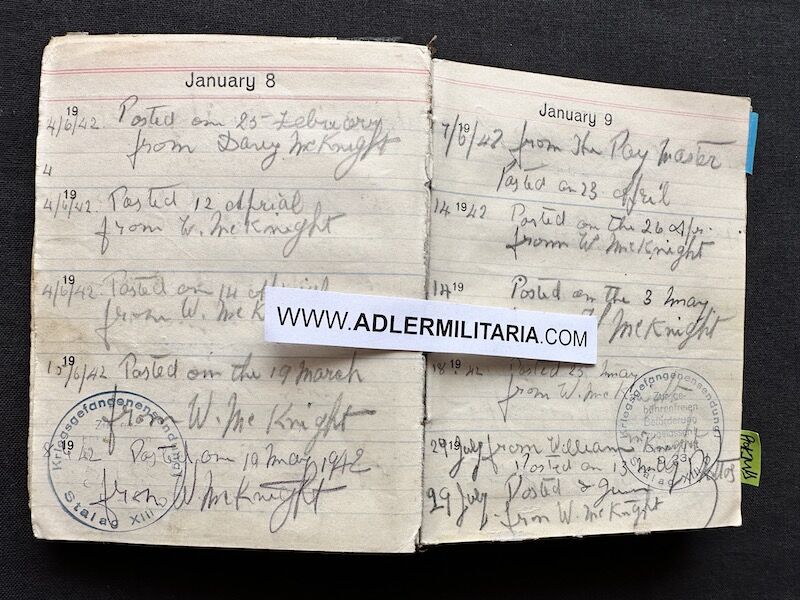 January 8
19
4/6/42. Posted on 25 Februery
from Davy McKnight
4
19
4/6/42. Posted 12 Aprial
from W. McKnight
19
4/6/42. Posted on 14
from W. McK
WWW.ADLERMILITARIA.COM
19
/6/42 Posted on the 19 March
from W. McKnight
19
42 Posted on 19 May 1942
from W McKnight
Kriegsgefangenensendung
Stalag XIII
January 9
7/6/42 19 from The Pay Master
Posted on 23 April
14 19 42 Posted on the 26 Apr.
from W. McKnight
14 19 Posted on the 3 May
McKnight
18 19 42 Posted 23 May
from W. McK
Kriegsgefangenensendung
Zur ge-
bührenfreien
Beförderung
Stalag XIII
29 19 July from William McKnight
Posted on 13
29 July Posted 2 June
from W. McKnight